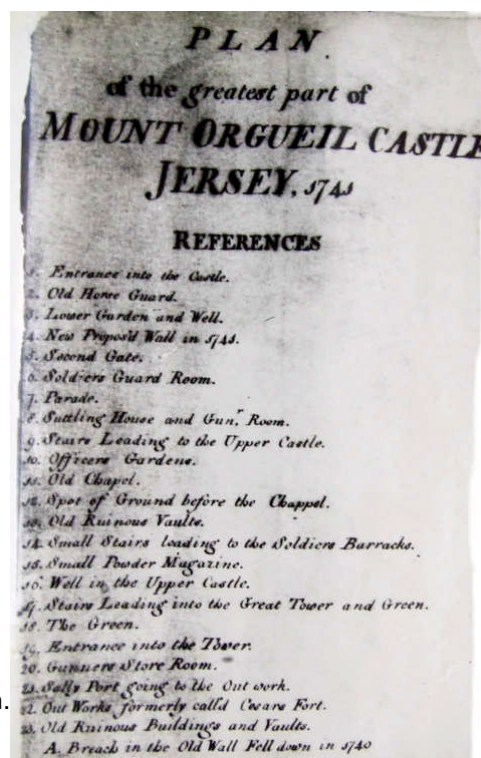 PLAN
of the greatest part of
MOUNT ORGUEIL CASTLE
JERSEY, 1741
REFERENCES
1. Entrance into the Castle.
2. Old Horse Guard.
3. Lower Garden and Well.
4. New Propos'd Wall in 1741.
5. Second Gate.
6. Soldiers Guard Room.
7. Parade.
8. Suttling House and Gunr. Room.
9. Stairs Leading to the Upper Castle.
10. Officers Gardens.
11. Old Chapel.
12. Spot of Ground before the Chappel.
13. Old Ruinous Vaults.
14. Small Stairs leading to the Soldiers Barracks.
15. Small Powder Magazine.
16. Well in the Upper Castle.
17. Stairs Leading into the Great Tower and Green.
18. The Green.
19. Entrance into the Tower.
20. Gunners Store Room.
21. Sally Port going to the Out work.
22. Out Works formerly call'd Cesars Fort.
23. Old Ruinous Buildings and Vaults.
A. Breach in the Old Wall Fell down in 1740